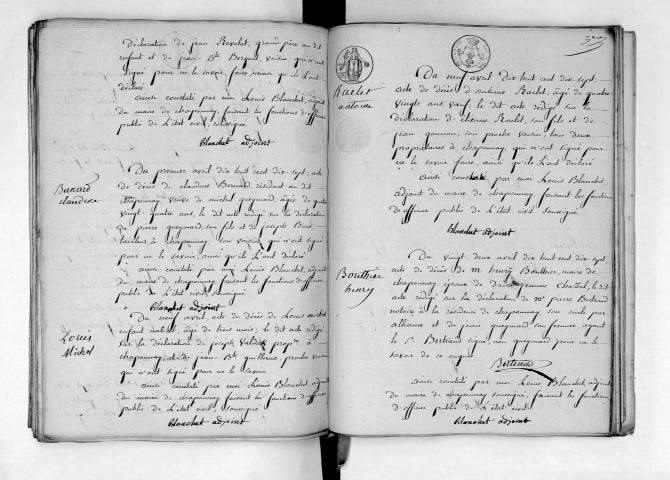 Déclaration de jean Revolat, grand père au dit
enfant et de jean Bte Berguet, voisin qui n'ont
signé pour ne le savoir faire ainsi qu'ils l'ont
déclaré
ainsi constaté par moi Louis Blanchet, adjoint
du maire de chaponnay, faisant les fonctions d'officier
public de l'état civil, soussigné
Blanchet adjoint
Bernard
claudine
Du premier avril dix huit cent dix sept, acte
de décès de claudine Bernard, résidant au dit
chaponnay, veuve de michel gueymard, âgée de quatre
vingt quatre ans, le dit acte rédigé sur la déclaration
de pierre gueymard, son fils et de joseph
à chaponnay, son voisin, qui n'ont signé
pour ne le savoir, ainsi qu'ils l'ont déclaré
ainsi constaté par moi Louis Blanchet, adjoint
du maire de chaponnay faisant les fonctions d'officier
public de l'état civil, soussigné
Blanchet adjoint
Louis
Michel
Du neuf avril, acte de décès de Louis michel
enfant naturel âgé de trois mois, le dit acte rédigé
sur la déclaration de joseph
chaponnay, et de jean Bte guillermo, proche voisin
qui n'ont signé pour ne le savoir
ainsi constaté par moi Louis Blanchet adjoint
du maire de chaponnay faisant les fonctions d'officier
public de l'état civil soussigné
Blanchet adjoint
Raclet
antoine
Du neuf avril dix huit cent dix sept,
acte de décès d'antoine Raclet, âgé de quatre
vingts ans, veuf, le dit acte rédigé sur la
déclaration de étienne Raclet, son fils et de
jean gounon, son proche voisin, tous deux
propriétaires à chaponnay, qui n'ont signé pour
ne le savoir faire, ainsi qu'ils l'ont déclaré
ainsi constaté par moi Louis Blanchet,
adjoint du maire de chaponnay, faisant les fonctions
d'officier public de l'état civil soussigné
Blanchet adjoint
Bouthier
henry
Du vingt deux avril dix huit cent dix sept.
acte de décès de m. henry Bouthier, maire de
chaponnay époux de dame jeanne Chazal, le dit
acte rédigé sur la déclaration de Mr pierre Bertrand
notaire à la résidence de chaponnay, son oncle par
alliance et de jean gueymard son fermier, ayant
le Sr Bertrand signé, non gueymard pour ne le
savoir de ce enquis
Bertrand
ainsi constaté par moi Louis Blanchet, adjoint
du maire de chaponnay, soussigné, faisant les fonctions
d'officier public de l'état civil.
Blanchet adjoint